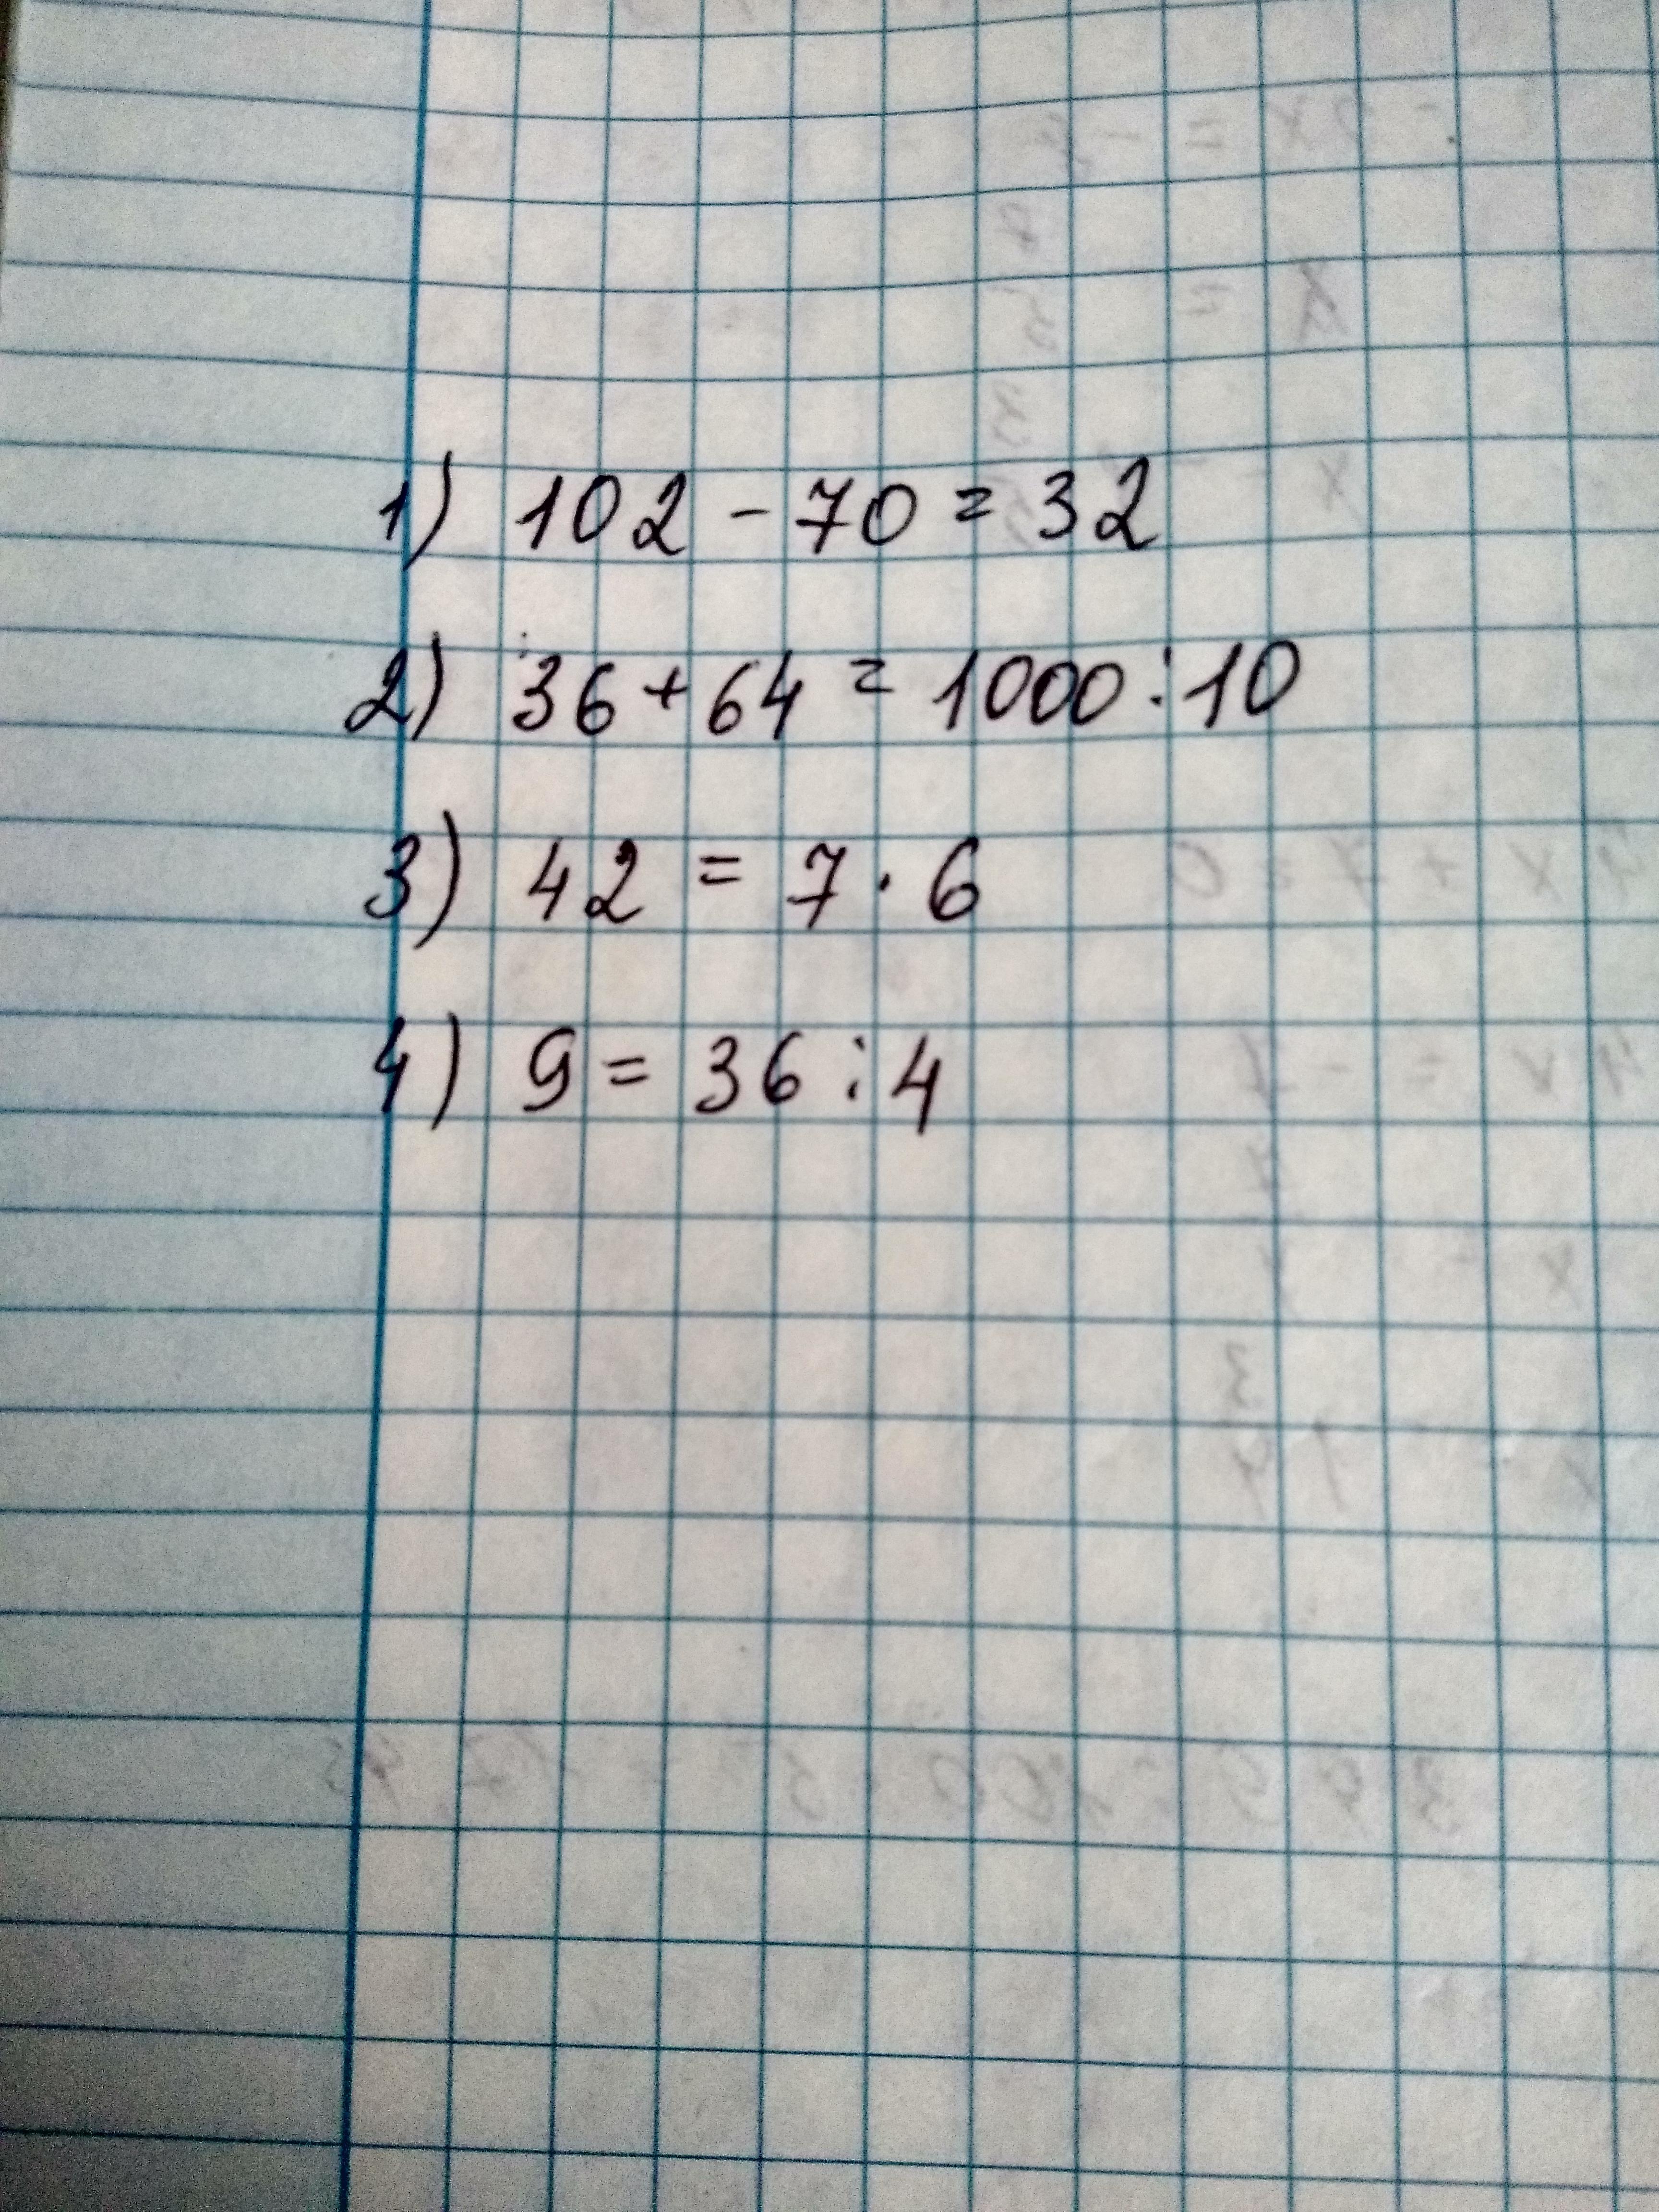 1) 102 - 70 = 32
2) 36 + 64 = 1000 : 10
3) 42 = 7 · 6
4) 9 = 36 : 4